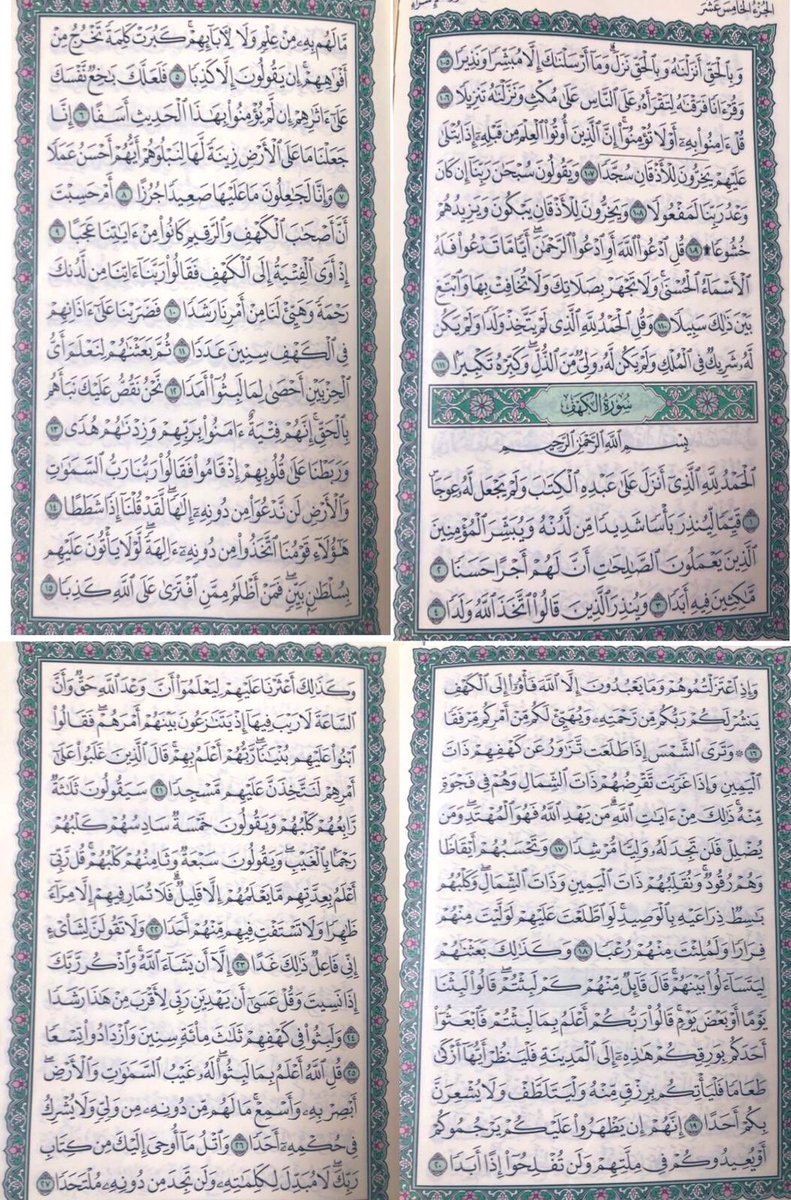 الجزء الخامس عشر
وَبِٱلۡحَقِّ أَنزَلۡنَٰهُ وَبِٱلۡحَقِّ نَزَلَۗ وَمَآ أَرۡسَلۡنَٰكَ إِلَّا مُبَشِّرٗا وَنَذِيرٗا ١٠٥
وَقُرۡءَانٗا فَرَقۡنَٰهُ لِتَقۡرَأَهُۥ عَلَى ٱلنَّاسِ عَلَىٰ مُكۡثٖ وَنَزَّلۡنَٰهُ تَنزِيلٗا ١٠٦
قُلۡ ءَامِنُواْ بِهِۦٓ أَوۡ لَا تُؤۡمِنُوٓاْۚ إِنَّ ٱلَّذِينَ أُوتُواْ ٱلۡعِلۡمَ مِن قَبۡلِهِۦٓ إِذَا يُتۡلَىٰ
عَلَيۡهِمۡ يَخِرُّونَۤ لِلۡأَذۡقَانِۤ سُجَّدٗا ١٠٧ وَيَقُولُونَ سُبۡحَٰنَ رَبِّنَآ إِن كَانَ
وَعۡدُ رَبِّنَا لَمَفۡعُولٗا ١٠٨ وَيَخِرُّونَ لِلۡأَذۡقَانِ يَبۡكُونَ وَيَزِيدُهُمۡ
خُشُوعٗا۩ ١٠٩ قُلِ ٱدۡعُواْ ٱللَّهَ أَوِ ٱدۡعُواْ ٱلرَّحۡمَٰنَۖ أَيّٗا مَّا تَدۡعُواْ فَلَهُ
ٱلۡأَسۡمَآءُ ٱلۡحُسۡنَىٰۚ وَلَا تَجۡهَرۡ بِصَلَاتِكَ وَلَا تُخَافِتۡ بِهَا وَٱبۡتَغِ
بَيۡنَ ذَٰلِكَ سَبِيلٗا ١١٠ وَقُلِ ٱلۡحَمۡدُ لِلَّهِ ٱلَّذِي لَمۡ يَتَّخِذۡ وَلَدٗا وَلَمۡ يَكُن
لَّهُۥ شَرِيكٞ فِي ٱلۡمُلۡكِ وَلَمۡ يَكُن لَّهُۥ وَلِيّٞ مِّنَ ٱلذُّلِّۖ وَكَبِّرۡهُ تَكۡبِيرَۢا ١١١
سُورَةُ الكَهۡفِ
بِسۡمِ ٱللَّهِ ٱلرَّحۡمَٰنِ ٱلرَّحِيمِ
ٱلۡحَمۡدُ لِلَّهِ ٱلَّذِيٓ أَنزَلَ عَلَىٰ عَبۡدِهِ ٱلۡكِتَٰبَ وَلَمۡ يَجۡعَل لَّهُۥ عِوَجَاۜ
١ قَيِّمٗا لِّيُنذِرَ بَأۡسٗا شَدِيدٗا مِّن لَّدُنۡهُ وَيُبَشِّرَ ٱلۡمُؤۡمِنِينَ
ٱلَّذِينَ يَعۡمَلُونَ ٱلصَّٰلِحَٰتِ أَنَّ لَهُمۡ أَجۡرًا حَسَنٗا ٢
مَّٰكِثِينَ فِيهِ أَبَدٗا ٣ وَيُنذِرَ ٱلَّذِينَ قَالُواْ ٱتَّخَذَ ٱللَّهُ وَلَدٗا ٤
مَّا لَهُم بِهِۦ مِنۡ عِلۡمٖ وَلَا لِأٓبَآئِهِمۡۚ كَبُرَتۡ كَلِمَةٗ تَخۡرُجُ مِنۡ
أَفۡوَٰهِهِمۡۚ إِن يَقُولُونَ إِلَّا كَذِبٗا ٥ فَلَعَلَّكَ بَٰخِعٞ نَّفۡسَكَ
عَلَىٰٓ ءَاثَٰرِهِمۡ إِن لَّمۡ يُؤۡمِنُواْ بِهَٰذَا ٱلۡحَدِيثِ أَسَفًا ٦ إِنَّا
جَعَلۡنَا مَا عَلَى ٱلۡأَرۡضِ زِينَةٗ لَّهَا لِنَبۡلُوَهُمۡ أَيُّهُمۡ أَحۡسَنُ عَمَلٗا
٧ وَإِنَّا لَجَٰعِلُونَ مَا عَلَيۡهَا صَعِيدٗا جُرُزًا ٨ أَمۡ حَسِبۡتَ
أَنَّ أَصۡحَٰبَ ٱلۡكَهۡفِ وَٱلرَّقِيمِ كَانُواْ مِنۡ ءَايَٰتِنَا عَجَبًا ٩
إِذۡ أَوَى ٱلۡفِتۡيَةُ إِلَى ٱلۡكَهۡفِ فَقَالُواْ رَبَّنَآ ءَاتِنَا مِن لَّدُنكَ
رَحۡمَةٗ وَهَيِّئۡ لَنَا مِنۡ أَمۡرِنَا رَشَدٗا ١٠ فَضَرَبۡنَا عَلَىٰٓ ءَاذَانِهِمۡ
فِي ٱلۡكَهۡفِ سِنِينَ عَدَدٗا ١١ ثُمَّ بَعَثۡنَٰهُمۡ لِنَعۡلَمَ أَيُّ
ٱلۡحِزۡبَيۡنِ أَحۡصَىٰ لِمَا لَبِثُوٓاْ أَمَدٗا ١٢ نَّحۡنُ نَقُصُّ عَلَيۡكَ نَبَأَهُم
بِٱلۡحَقِّۚ إِنَّهُمۡ فِتۡيَةٌ ءَامَنُواْ بِرَبِّهِمۡ وَزِدۡنَٰهُمۡ هُدٗى ١٣
وَرَبَطۡنَا عَلَىٰ قُلُوبِهِمۡ إِذۡ قَامُواْ فَقَالُواْ رَبُّنَا رَبُّ ٱلسَّمَٰوَٰتِ
وَٱلۡأَرۡضِ لَن نَّدۡعُوَاْ مِن دُونِهِۦٓ إِلَٰهٗاۖ لَّقَدۡ قُلۡنَآ إِذٗا شَطَطًا ١٤
هَٰٓؤُلَآءِ قَوۡمُنَا ٱتَّخَذُواْ مِن دُونِهِۦٓ ءَالِهَةٗۖ لَّوۡلَا يَأۡتُونَ عَلَيۡهِم
بِسُلۡطَٰنِۭ بَيِّنٖۖ فَمَنۡ أَظۡلَمُ مِمَّنِ ٱفۡتَرَىٰ عَلَى ٱللَّهِ كَذِبٗا ١٥
وَإِذِ ٱعۡتَزَلۡتُمُوهُمۡ وَمَا يَعۡبُدُونَ إِلَّا ٱللَّهَ فَأۡوُۥٓاْ إِلَى ٱلۡكَهۡفِ
يَنشُرۡ لَكُمۡ رَبُّكُم مِّن رَّحۡمَتِهِۦ وَيُهَيِّئۡ لَكُم مِّنۡ أَمۡرِكُم مِّرۡفَقٗا
١٦ ۞ وَتَرَى ٱلشَّمۡسَ إِذَا طَلَعَت تَّزَٰوَرُ عَن كَهۡفِهِمۡ ذَاتَ
ٱلۡيَمِينِ وَإِذَا غَرَبَت تَّقۡرِضُهُمۡ ذَاتَ ٱلشِّمَالِ وَهُمۡ فِي فَجۡوَةٖ
مِّنۡهُۚ ذَٰلِكَ مِنۡ ءَايَٰتِ ٱللَّهِۗ مَن يَهۡدِ ٱللَّهُ فَهُوَ ٱلۡمُهۡتَدِۖ وَمَن
يُضۡلِلۡ فَلَن تَجِدَ لَهُۥ وَلِيّٗا مُّرۡشِدٗا ١٧ وَتَحۡسَبُهُمۡ أَيۡقَاظٗا
وَهُمۡ رُقُودٞۚ وَنُقَلِّبُهُمۡ ذَاتَ ٱلۡيَمِينِ وَذَاتَ ٱلشِّمَالِۖ وَكَلۡبُهُم
بَٰسِطٞ ذِرَاعَيۡهِ بِٱلۡوَصِيدِۚ لَوِ ٱطَّلَعۡتَ عَلَيۡهِمۡ لَوَلَّيۡتَ مِنۡهُمۡ
فِرَارٗا وَلَمُلِئۡتَ مِنۡهُمۡ رُعۡبٗا ١٨ وَكَذَٰلِكَ بَعَثۡنَٰهُمۡ
لِيَتَسَآءَلُواْ بَيۡنَهُمۡۚ قَالَ قَآئِلٞ مِّنۡهُمۡ كَمۡ لَبِثۡتُمۡۖ قَالُواْ لَبِثۡنَا
يَوۡمًا أَوۡ بَعۡضَ يَوۡمٖۚ قَالُواْ رَبُّكُمۡ أَعۡلَمُ بِمَا لَبِثۡتُمۡ فَٱبۡعَثُوٓاْ
أَحَدَكُم بِوَرِقِكُمۡ هَٰذِهِۦٓ إِلَى ٱلۡمَدِينَةِ فَلۡيَنظُرۡ أَيُّهَآ أَزۡكَىٰ
طَعَامٗا فَلۡيَأۡتِكُم بِرِزۡقٖ مِّنۡهُ وَلۡيَتَلَطَّفۡ وَلَا يُشۡعِرَنَّ
بِكُمۡ أَحَدًا ١٩ إِنَّهُمۡ إِن يَظۡهَرُواْ عَلَيۡكُمۡ يَرۡجُمُوكُمۡ
أَوۡ يُعِيدُوكُمۡ فِي مِلَّتِهِمۡ وَلَن تُفۡلِحُوٓاْ إِذًا أَبَدٗا ٢٠
وَكَذَٰلِكَ أَعۡثَرۡنَا عَلَيۡهِمۡ لِيَعۡلَمُوٓاْ أَنَّ وَعۡدَ ٱللَّهِ حَقّٞ وَأَنَّ
ٱلسَّاعَةَ لَا رَيۡبَ فِيهَآ إِذۡ يَتَنَٰزَعُونَ بَيۡنَهُمۡ أَمۡرَهُمۡۖ فَقَالُواْ
ٱبۡنُواْ عَلَيۡهِم بُنۡيَٰنٗاۖ رَّبُّهُمۡ أَعۡلَمُ بِهِمۡۚ قَالَ ٱلَّذِينَ غَلَبُواْ عَلَىٰٓ
أَمۡرِهِمۡ لَنَتَّخِذَنَّ عَلَيۡهِم مَّسۡجِدٗا ٢١ سَيَقُولُونَ ثَلَٰثَةٞ
رَّابِعُهُمۡ كَلۡبُهُمۡ وَيَقُولُونَ خَمۡسَةٞ سَادِسُهُمۡ كَلۡبُهُمۡ
رَجۡمَۢا بِٱلۡغَيۡبِۖ وَيَقُولُونَ سَبۡعَةٞ وَثَامِنُهُمۡ كَلۡبُهُمۡۚ قُل رَّبِّيٓ
أَعۡلَمُ بِعِدَّتِهِم مَّا يَعۡلَمُهُمۡ إِلَّا قَلِيلٞۗ فَلَا تُمَارِ فِيهِمۡ إِلَّا مِرَآءٗ
ظَٰهِرٗا وَلَا تَسۡتَفۡتِ فِيهِم مِّنۡهُمۡ أَحَدٗا ٢٢ وَلَا تَقُولَنَّ لِشَاْيۡءٍ
إِنِّي فَاعِلٞ ذَٰلِكَ غَدًا ٢٣ إِلَّآ أَن يَشَآءَ ٱللَّهُۚ وَٱذۡكُر رَّبَّكَ
إِذَا نَسِيتَ وَقُلۡ عَسَىٰٓ أَن يَهۡدِيَنِ رَبِّي لِأَقۡرَبَ مِنۡ هَٰذَا رَشَدٗا
٢٤ وَلَبِثُواْ فِي كَهۡفِهِمۡ ثَلَٰثَ مِاْئَةٖ سِنِينَ وَٱزۡدَادُواْ تِسۡعٗا
٢٥ قُلِ ٱللَّهُ أَعۡلَمُ بِمَا لَبِثُواْۖ لَهُۥ غَيۡبُ ٱلسَّمَٰوَٰتِ وَٱلۡأَرۡضِۖ
أَبۡصِرۡ بِهِۦ وَأَسۡمِعۡۚ مَا لَهُم مِّن دُونِهِۦ مِن وَلِيّٖ وَلَا يُشۡرِكُ
فِي حُكۡمِهِۦٓ أَحَدٗا ٢٦ وَٱتۡلُ مَآ أُوحِيَ إِلَيۡكَ مِن كِتَابِ
رَبِّكَۖ لَا مُبَدِّلَ لِكَلِمَٰتِهِۦ وَلَن تَجِدَ مِن دُونِهِۦ مُلۡتَحَدٗا ٢٧